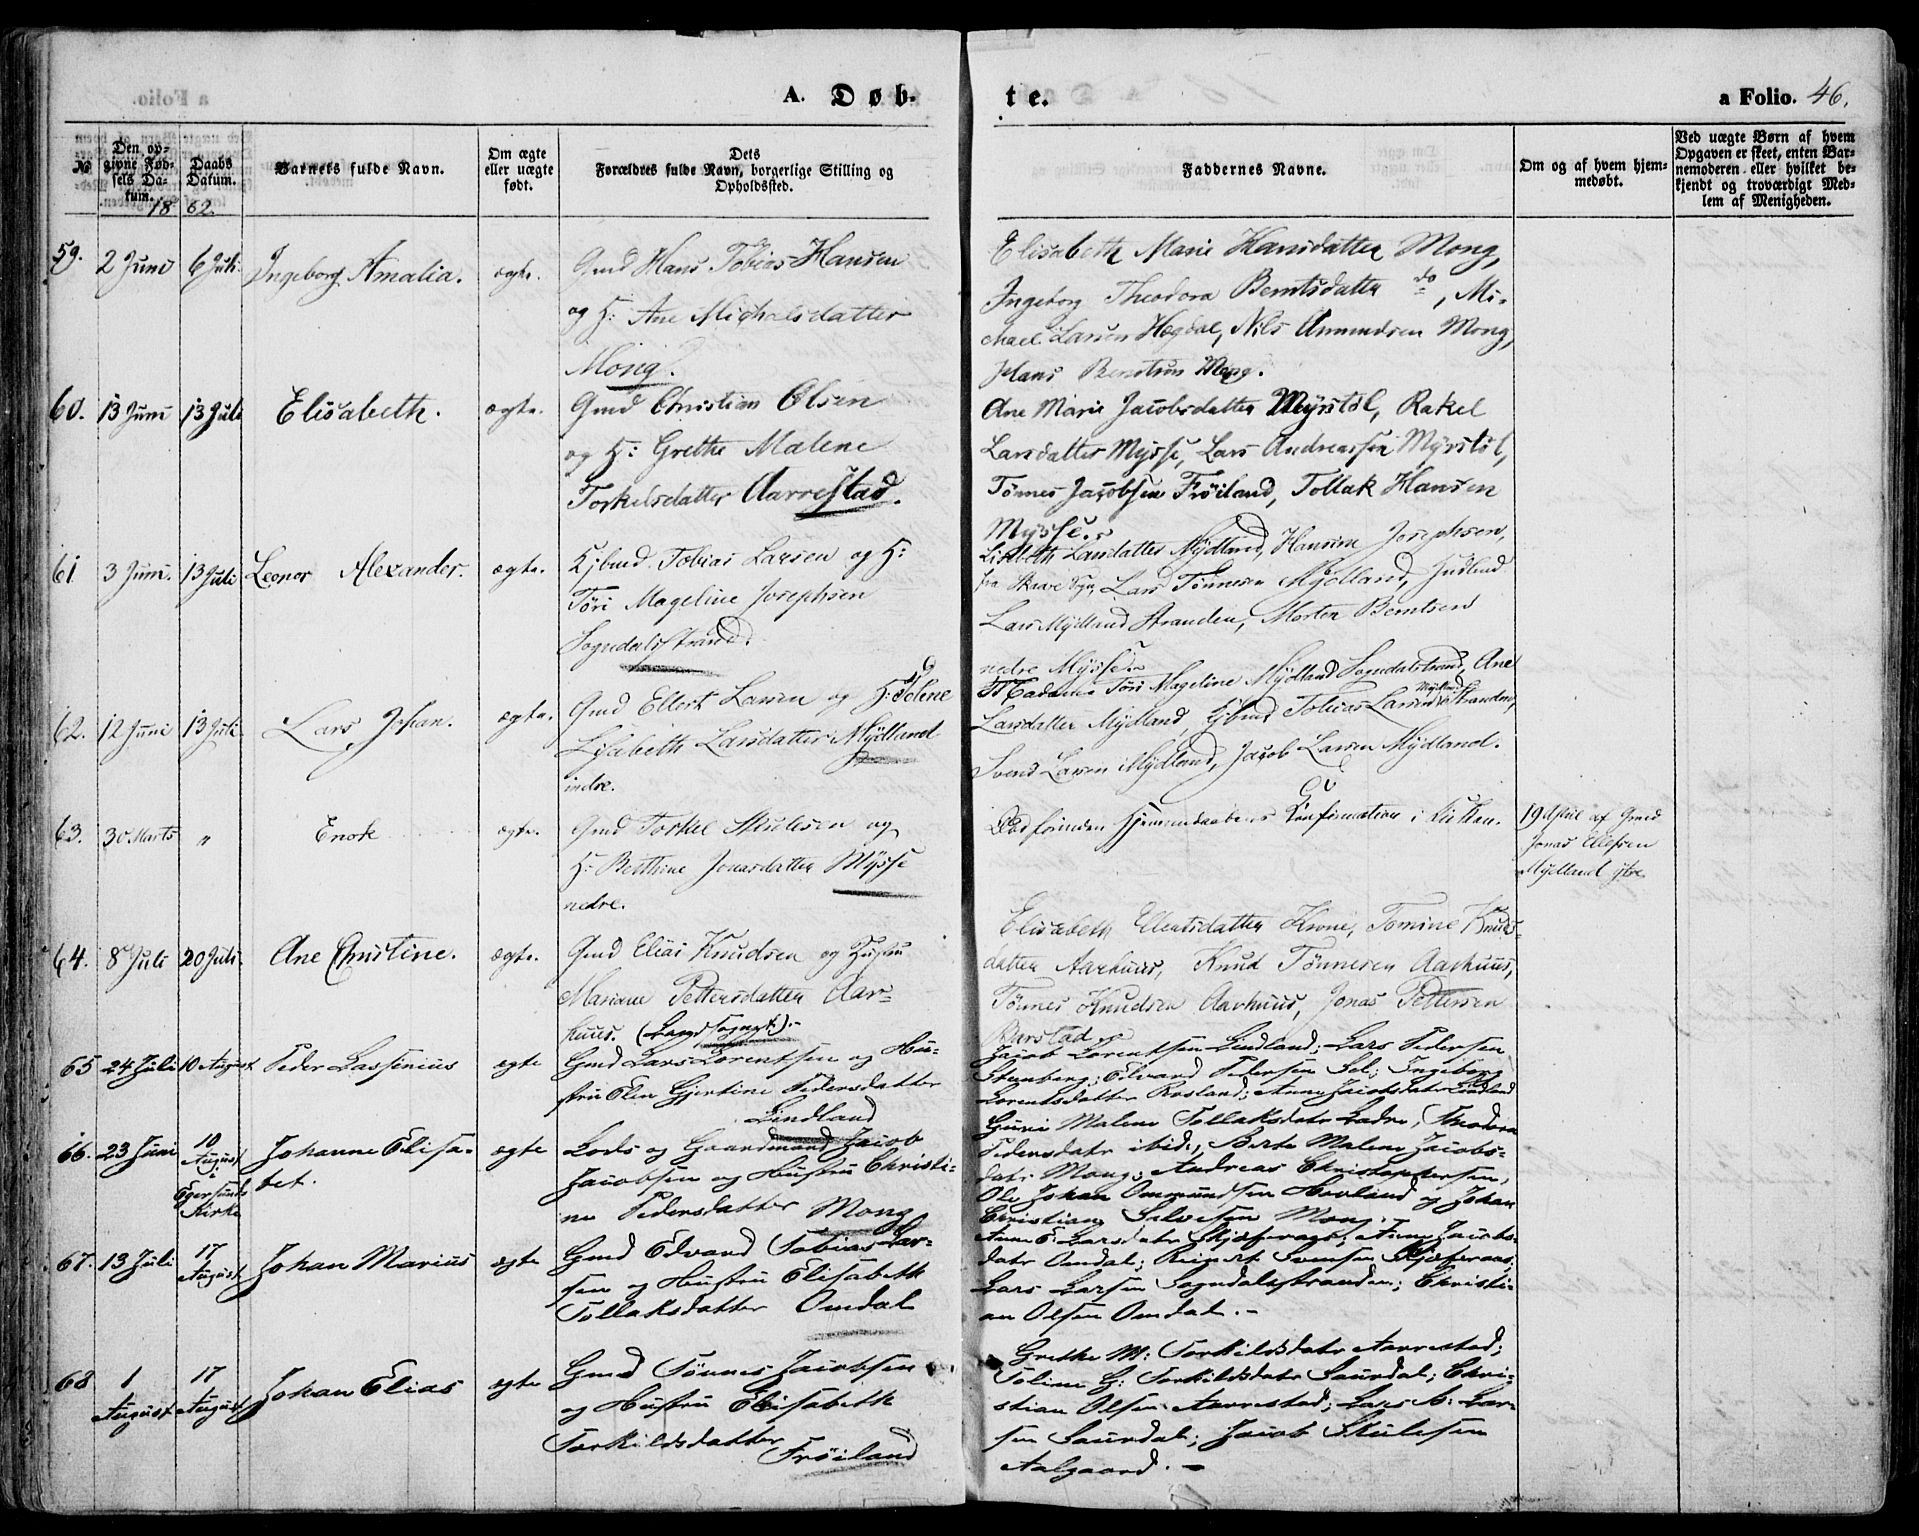 A. Døb-
te.
a Folio. 46.
№
Den op-
givne Fød-
sels Da-
tum.
Daabs
Datum.
Barnets fulde Navn.
Om ægte
eller uægte
født.
Dets
Forældres fulde Navn, borgerlige Stilling og
Opholdsted.
Faddernes Navne.
Om og af hvem hjem-
medøbt.
Ved uægte Børn af hvem
Opgaven er skeet, enten Bar-
nemoderen eller hvilket be-
kjendt og troværdigt Med-
lem af Menigheden.
1862.
59. 2 Juni 6 Juli Ingeborg Amalia. ægte.
Gmd Hans Tobias Hansen
og H: Ane Michalsdatter
Mong.
Elisabeth Marie Hansdatter Mong,
Ingeborg Theodora Berntsdatter do, Mi-
chael Larsen Hegdal, Nils Amundsen Mong,
Hans Berntsen Mong.
60. 13 Juni 13 Juli Elisabeth. ægte.
Gmd Christian Olsen
og H: Grethe Malene
Torkelsdatter Aarrestad.
Ane Marie Jacobsdatter Myrstøl, Rakel
Larsdatter Mysse, Lars Andreassen Myrstøl,
Tønnes Jacobsen Frøiland, Tollak Hansen
Mysse.
61 3 Juni. 13 Juli Leonor Alexander. ægte.
Tobias Larsen og H:
Tøri Mageline Josephsen
Sogndalsstrand.
Lisbeth Larsdatter Mydland, Hansine Josephsen,
fra Lars Tønnesen Mydland,
Lars Mydland Stranden, Morten Berntsen
nedre Mysse.
62. 12 Juni 13 Juli Lars Johan. ægte.
Gmd Ellert Larsen og H: Tolene
Lisabeth Larsdatter Mydland
indre.
Tøri Mageline Mydland Sogndalstrand, Ane
Larsdatter Mydland, Tobias Larsen Mydland Stranden,
Svend Larsen Mydland, Jacob Larsen Mydland.
63. 30 Marts " Enok ægte.
Gmd Torkel Skulesen og
H: Berthine Jonasdatter Mysse
nedre.
Død forinden Hjemmedaabens Confirmation i Kirken.
19 April af Gmd
Jonas Ellefsen
Mydland ytre
64. 8 Juli 20 Juli. Ane Christine. ægte.
Gmd Elias Knudsen og Hustru
Mariane Pettersdatter Aar-
huus. (Lands Sognet).-
Elisabeth Ellertsdatter Krone, Tomine Knuds-
datter Aarhuus, Knud Tønnesen Aarhuus,
Tønnes Knudsen Aarhuus, Jonas Pettersen
Barstad
65 24 Juli 10 August Peder Lassenius ægte
Gmd Lars Lorentsen og Hu-
stru Elen Gjertine Pedersdatter
Lindland
Jacob Lorentsen Lindland; Lars Pedersen
Steenberg; Edvard Pedersen Sel; Ingeborg
Lorentsdatter Rosland; Anne Jacobsdatter Lindland
66. 23 Juni 10
August
i
Egersunds
Kirke
Johanne Elisa-
bet. ægte
Lods og Gaardmand Jacob
Jacobsen og Hustru Christi-
ne Pedersdatter Mong
Guri Malene Tollaksdatr Ladre, Theodora
Pedersdatr ibid:, Berte Malene Jacobs-
datr Mong; Andreas Christophersen,
Ole Johan Ommundsen Hovland og Johan
Christian Salvesen Mong
67. 13 Juli 17
August
Johan Marius ægte
Gmd Edvard Tobias Lar-
sen og Hustru Elisabeth
Tollaksdatter Omdal
Anne E. Larsdatr Skjefveraas; Anne Jacobs-
datr Omdal; Reinert Svensen Skjefveraas;
Lars Larsen Sogndalsstranden; Christi-
an Olsen Omdal.-
68 1
August
17
August
Johan Elias ægte
Gmd Tønnes Jacobsen
og Hustru Elisabeth
Torkildsdatter
Frøiland
Grethe M: Torkildsdatr Aarrestad;
Toline G: Torkildsdatr Saurdal; Chri-
stian Olsen Aarrestad; Lars A: Lar-
sen Saurdal; Jacob Skulesen
Aalgaard.-